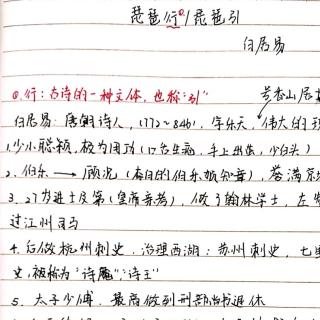 琵琶行①/琵琶引
白居易
①行：古诗的一种文体，也称"引"
号香山居
白居易：唐朝诗人，(772~846)，字乐天，伟大的现
1.少小聪颖，极为用功(口舌生疮，手上出茧，少白头)
2、伯乐→顾况(春日的伯乐姚知章)，誉满京
3、27岁进士及第(皇席亲考)，做了翰林学士，左
过江州司马
4.后做杭州刺史，治理西湖；苏州刺史，七里
史，被称为"诗魔""诗王"
5、太子少傅，最高做到刑部尚书退休